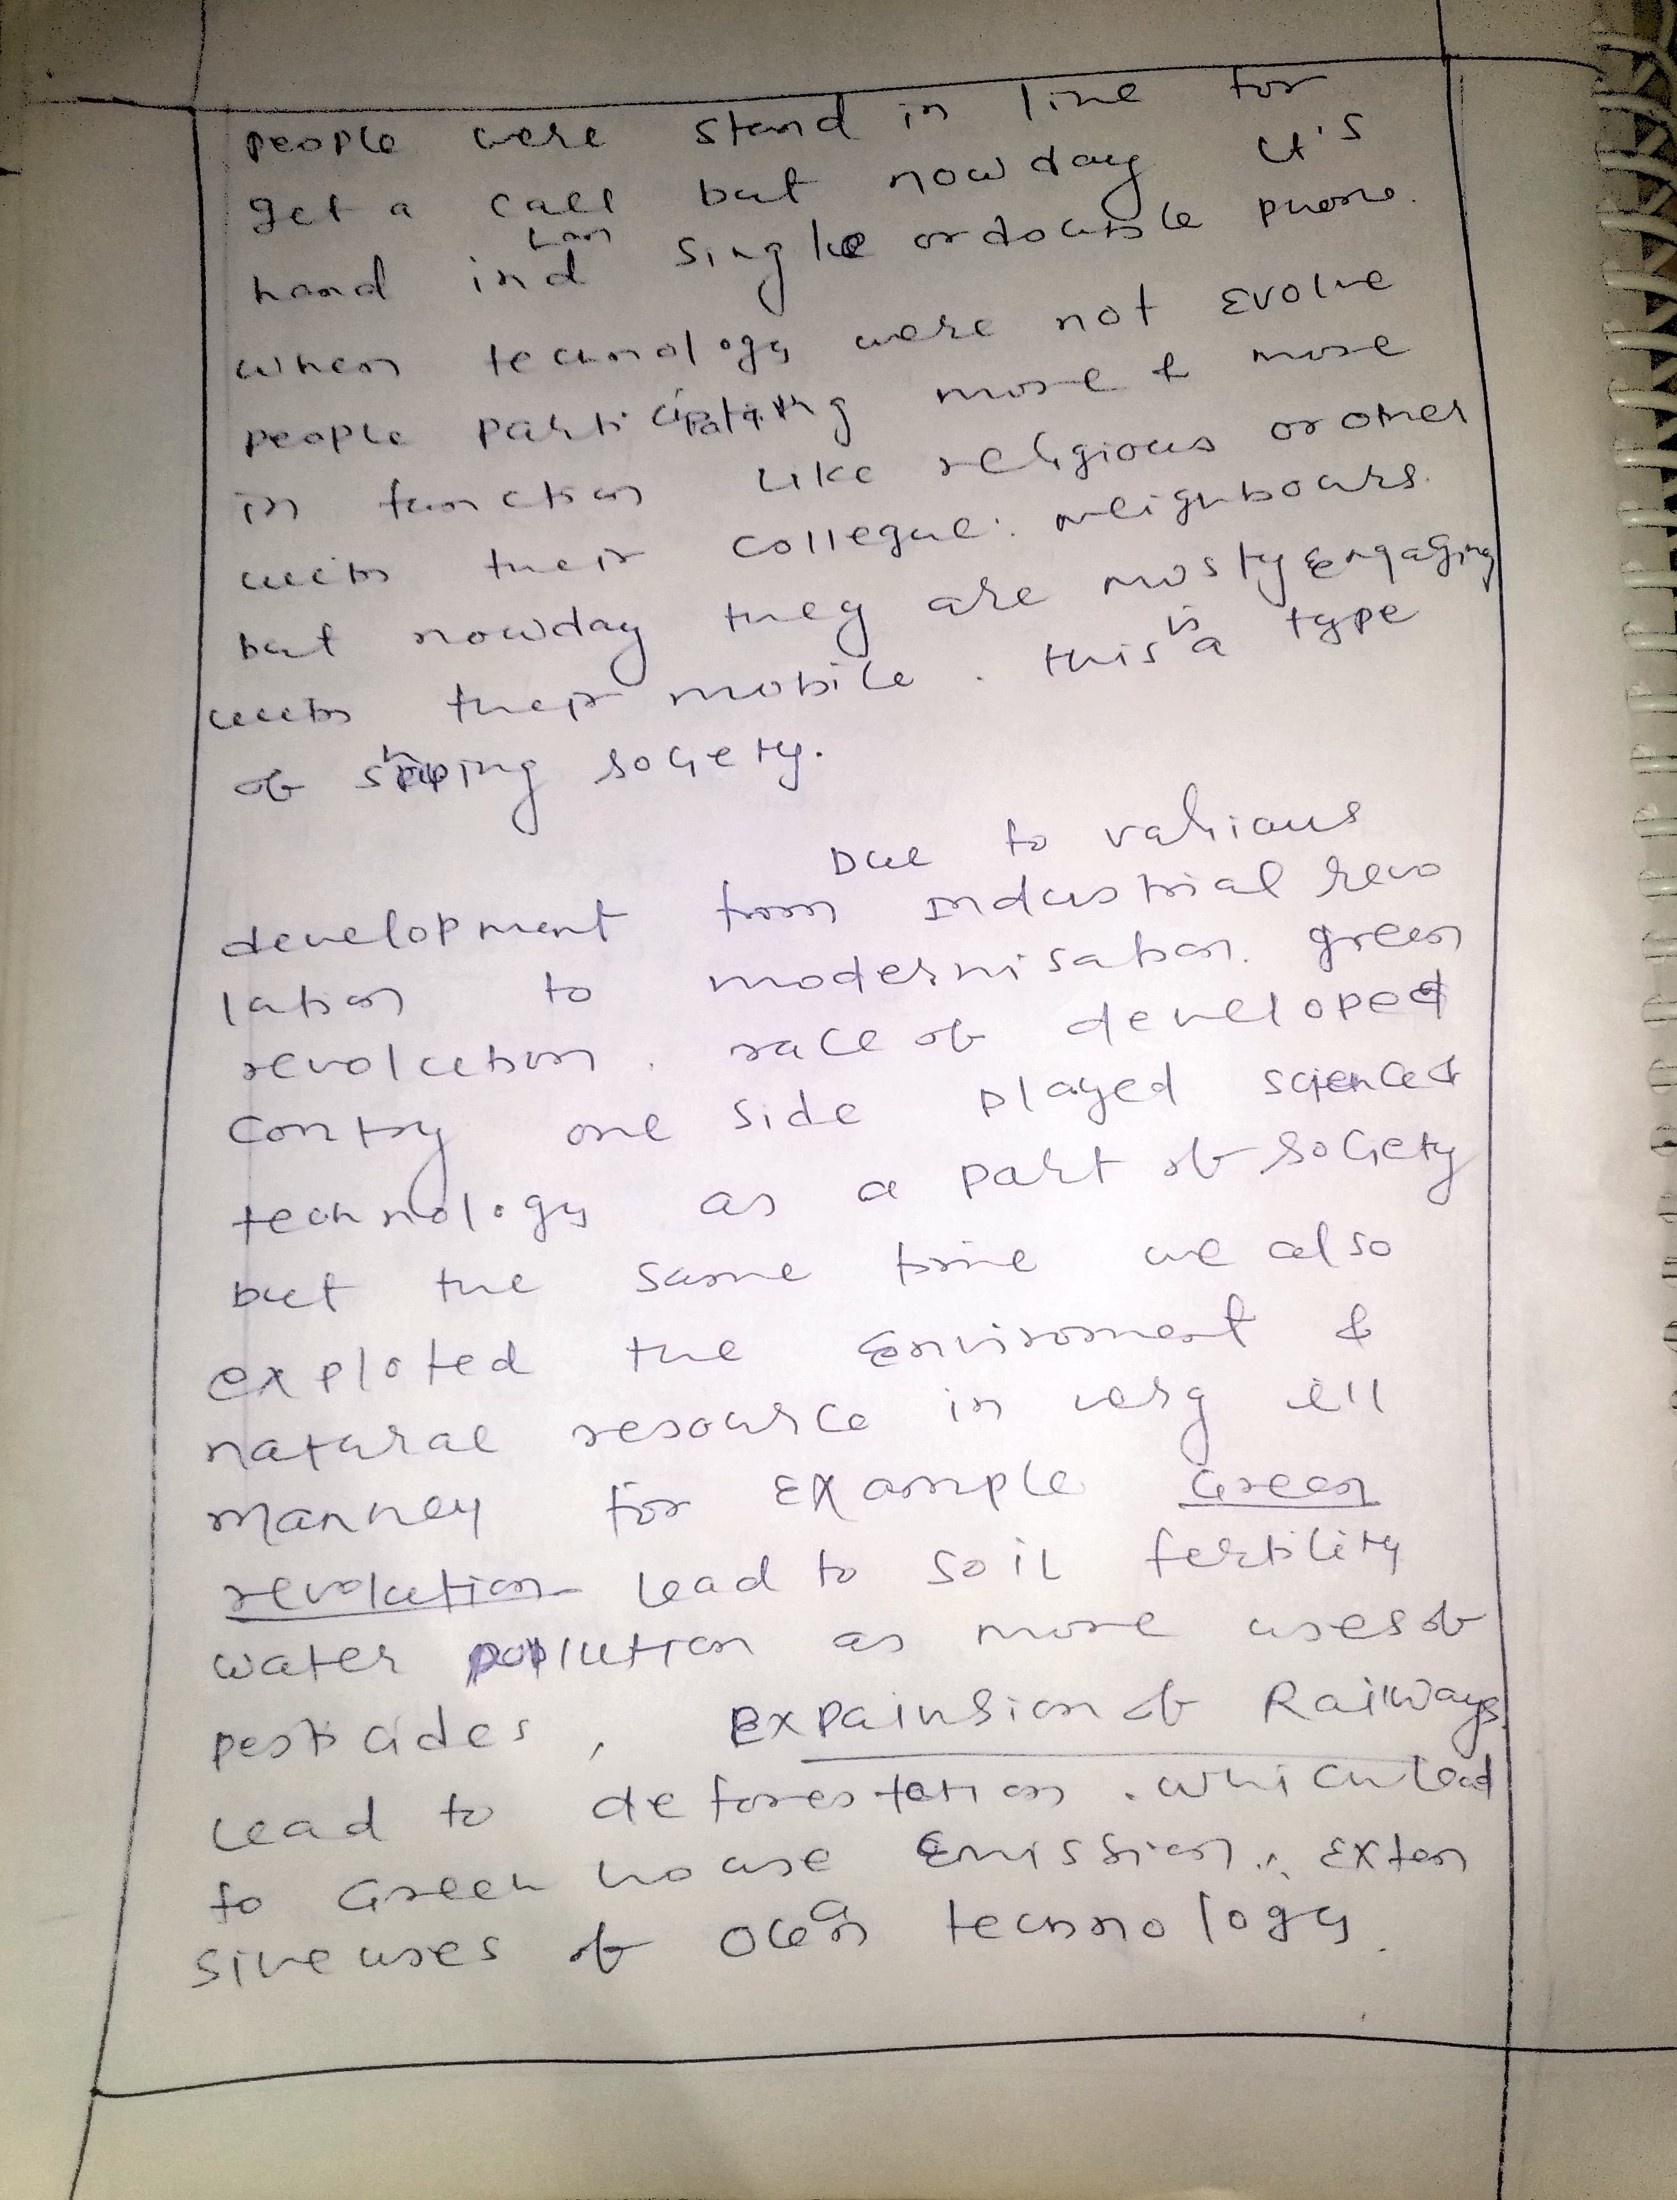 people were stand in line for
get a call but nowday it's
hand in single or double phone.
when technology were not evolve
people participating more & more
in function like religious or other
with their collegue. neighbours.
but nowday they are mosty engaging
with their mobile. this is a type
of shaping society.
Due to various
development from industrial revo
lution to modernisation. green
revolution. race of developed
contry one side played science &
technology as a part of society
but the same time we also
exploted the enviroment &
natural resource in very ill
manney for example Green
revolution lead to soil fertility
water pollution as more uses of
pesticides, Expainsion of Railways
lead to deforestation. which lead
to Green house emission. exten
sive uses of ocean technology.